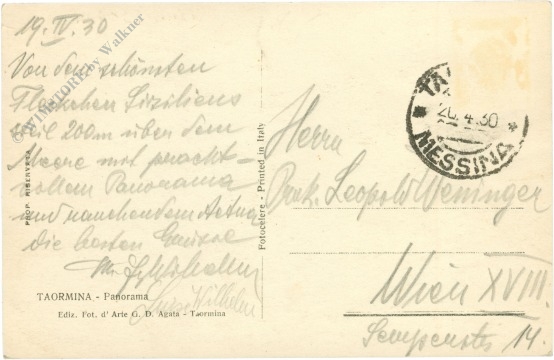 19. IV. 30
Von dem schönsten
Fleckchen Siziliens
steil 200m über dem
Meere mit pracht-
vollem Panorama
und rauchendem Aetna
die besten Grüsse
Wilhelm
TAORMINA - Panorama
Ediz. Fot. d' Arte G. D. Agata - Taormina
PROP. RISERVATA
Fotocelere - Printed in Italy
© WIMSTORE by Walkner
TA
20.4.30
MESSINA
Herrn
Leopold Weninger
Wien XVIII.
14.